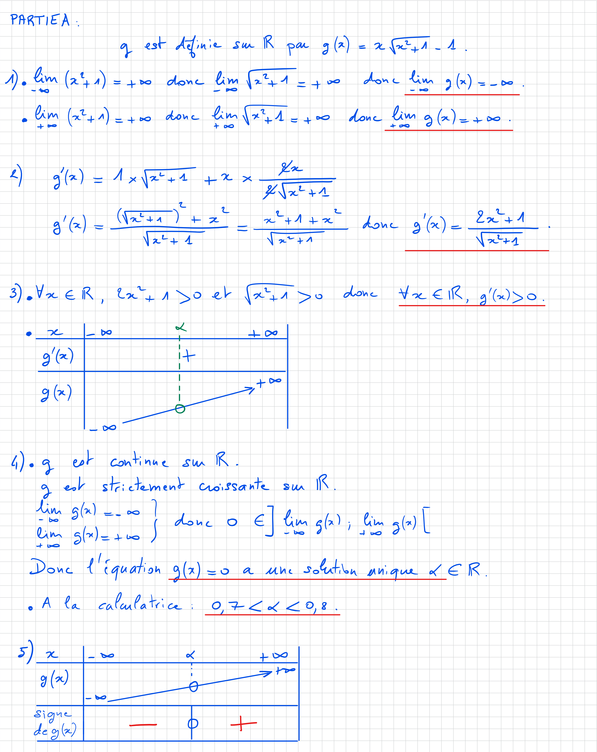 PARTIE A :
g est définie sur ℝ par g(x) = x√(x²+1) - 1.
1) • lim_{-∞} (x²+1) = +∞ donc lim_{-∞} √(x²+1) = +∞ donc lim_{-∞} g(x) = -∞.
• lim_{+∞} (x²+1) = +∞ donc lim_{+∞} √(x²+1) = +∞ donc lim_{+∞} g(x) = +∞.
2) g'(x) = 1 × √(x²+1) + x × 2x / 2√(x²+1)
g'(x) = ((√(x²+1))² + x²) / √(x²+1) = (x²+1+x²) / √(x²+1) donc g'(x) = (2x²+1) / √(x²+1).
3) • ∀x ∈ ℝ, 2x²+1 > 0 et √(x²+1) > 0 donc ∀x ∈ ℝ, g'(x) > 0.
• x -∞ α +∞
g'(x) +
g(x) -∞ 0 +∞
4) • g est continue sur ℝ.
g est strictement croissante sur ℝ.
lim_{-∞} g(x) = -∞
lim_{+∞} g(x) = +∞ } donc 0 ∈ ] lim_{-∞} g(x) ; lim_{+∞} g(x) [
Donc l'équation g(x) = 0 a une solution unique α ∈ ℝ.
• A la calculatrice : 0,7 < α < 0,8.
5) x -∞ α +∞
g(x) -∞ 0 +∞
signe de g(x) − 0 +